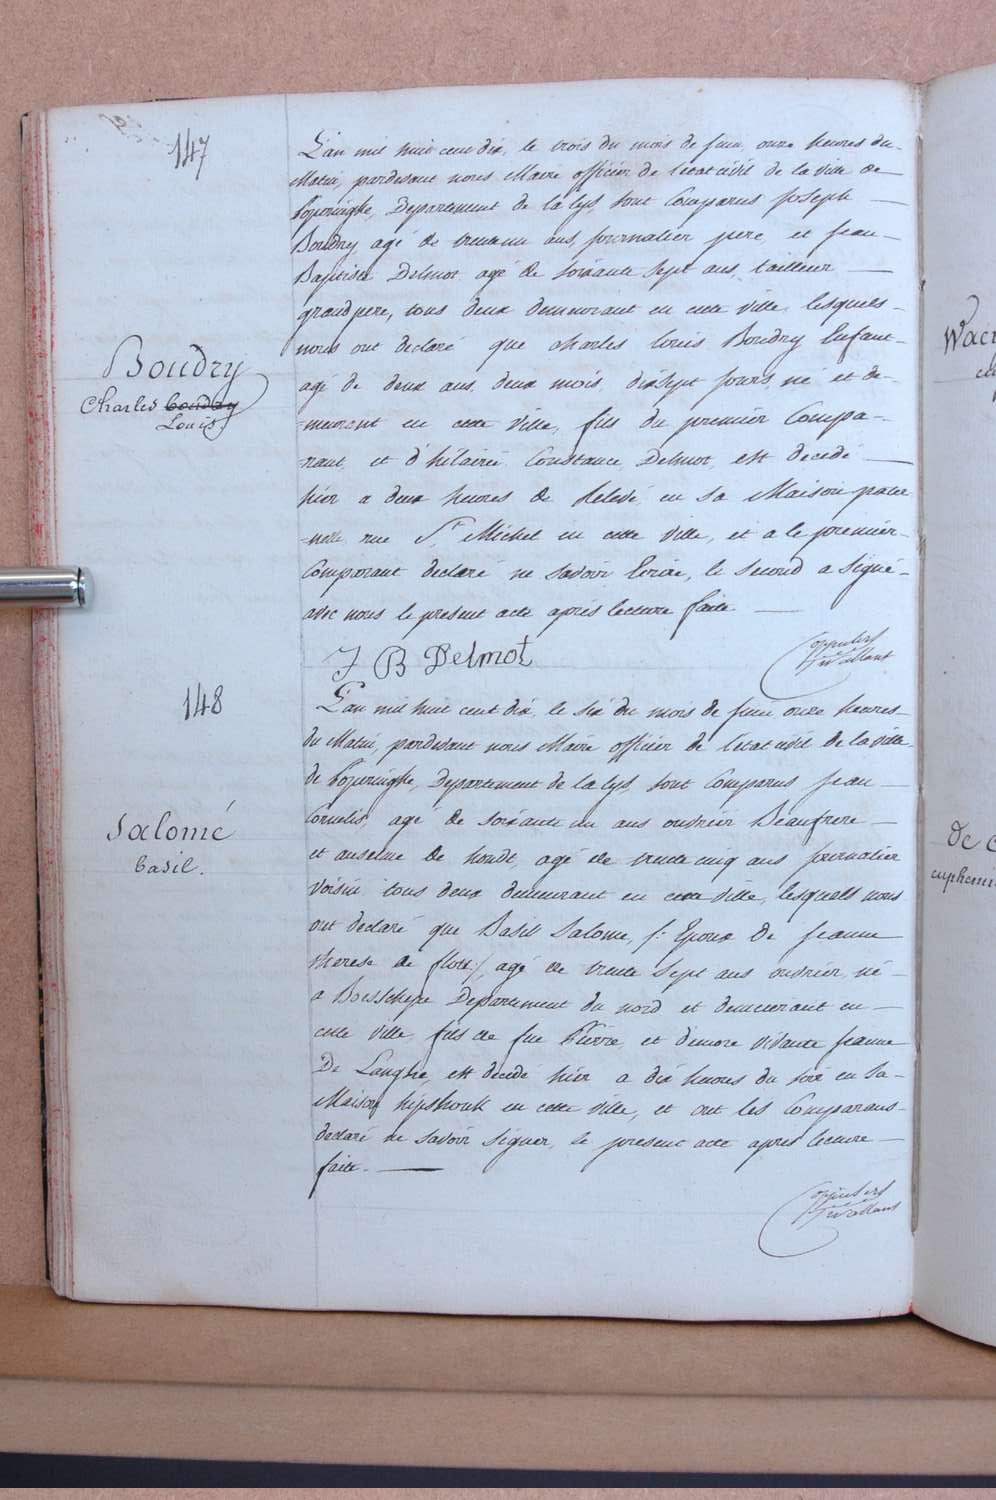 147
L'an mil huit cent dix, le trois du mois de juin, onze heures du
Matin, pardevant nous Maire officier de l'état civil de la ville de
Poperinghe, Departement de la lys, sont Comparus Joseph
Boudry, agé de trente un ans, journalier pere, et jean
Baptiste Delmot agé de soixante sept ans, tailleur
grandpere, tous deux demeurant en cette ville, lesquels
nous ont declaré que charles louis Boudry Enfant
Boudry
Charles Boudry
Louis
agé de deux ans, deux mois, dixsept jours, né et de-
-meurant en cette ville, fils du premier Compa-
-rant, et d'hilairé Constance Delmot, est decedé
hier a deux heures de Relevé, en sa Maison pater
-nelle rue St. Michel en cette ville, et a le premier
Comparant declaré ne savoir Ecrire, le second a signé
avec nous le present acte après lecture faite
J B Delmot
148
L'an mil huit cent dix, le six du mois de juin onze heures
du Matin, pardevant nous Maire officier de l'état civil de la ville
de Poperinghe, Departement de la lys, sont Comparus jean
Cornelis, agé de soixante un ans ouvrier Beaufrere
Salomé
basil.
et anselme de houdt, agé de trente cinq ans journalier
voisin tous deux demeurant en cette ville, lesquels nous
ont declaré que Basil Salome, /: Epoux de jeanne
therese de flott :/, agé de trente sept ans ouvrier, né
a Boesschepe Departement du nord et demeurant en
cette ville, fils de feu Pierre, et d'encore vivante jeanne
De Langhe, est decedé hier a dix heures du soir en sa
Maison hipshouk en cette ville, et ont les Comparans
declaré ne savoir signer, le present acte après lecture
faite.
De C